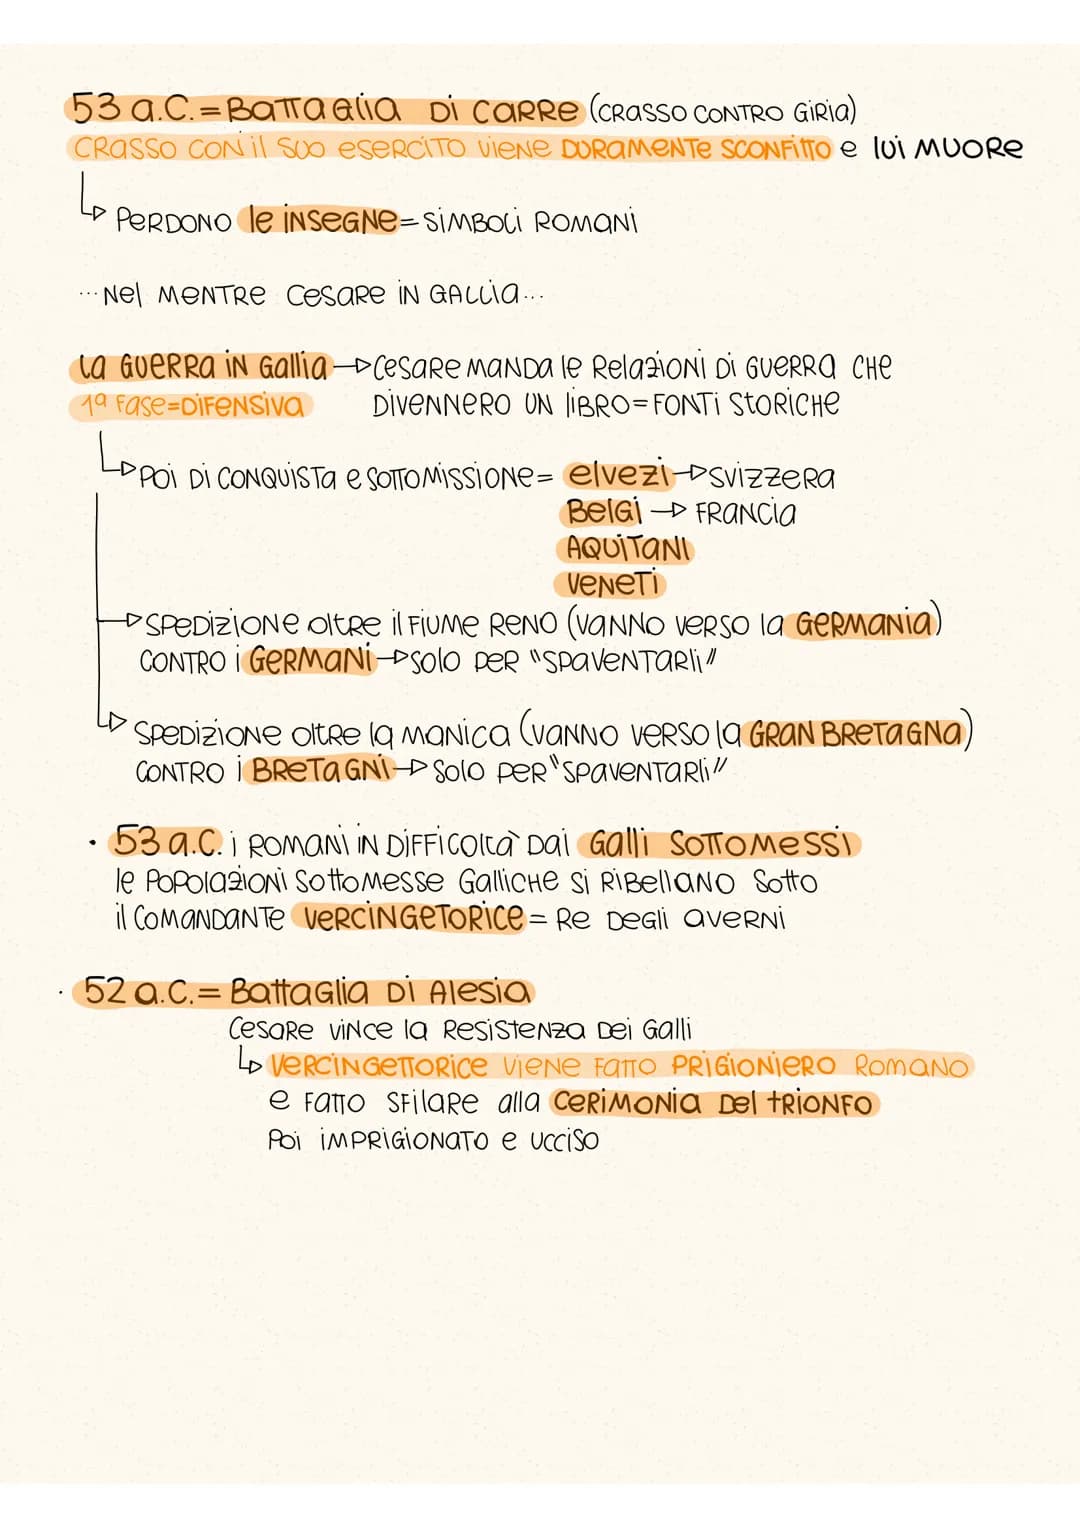 53 a.C. = Battaglia di Carre (Crasso contro Giria)
Crasso con il suo esercito viene duramente sconfitto e lui muore
↳ Perdono le insegne = simboli romani
...Nel mentre Cesare in Gallia...
La guerra in Gallia → Cesare manda le relazioni di guerra che
1ª fase = difensiva divennero un libro = fonti storiche
↳ Poi di conquista e sottomissione = elvezi → svizzera
Belgi → Francia
Aquitani
Veneti
→ Spedizione oltre il fiume Reno (vanno verso la Germania)
contro i Germani → solo per "spaventarli"
↳ Spedizione oltre la manica (vanno verso la Gran Bretagna)
contro i Bretagni → solo per "spaventarli"
· 53 a.C. i romani in difficoltà dai Galli sottomessi
le popolazioni sottomesse galliche si ribellano sotto
il comandante Vercingetorice = re degli averni
· 52 a.C. = Battaglia di Alesia
Cesare vince la resistenza dei Galli
↳ Vercingettorice viene fatto prigioniero romano
e fatto sfilare alla cerimonia del trionfo
Poi imprigionato e ucciso